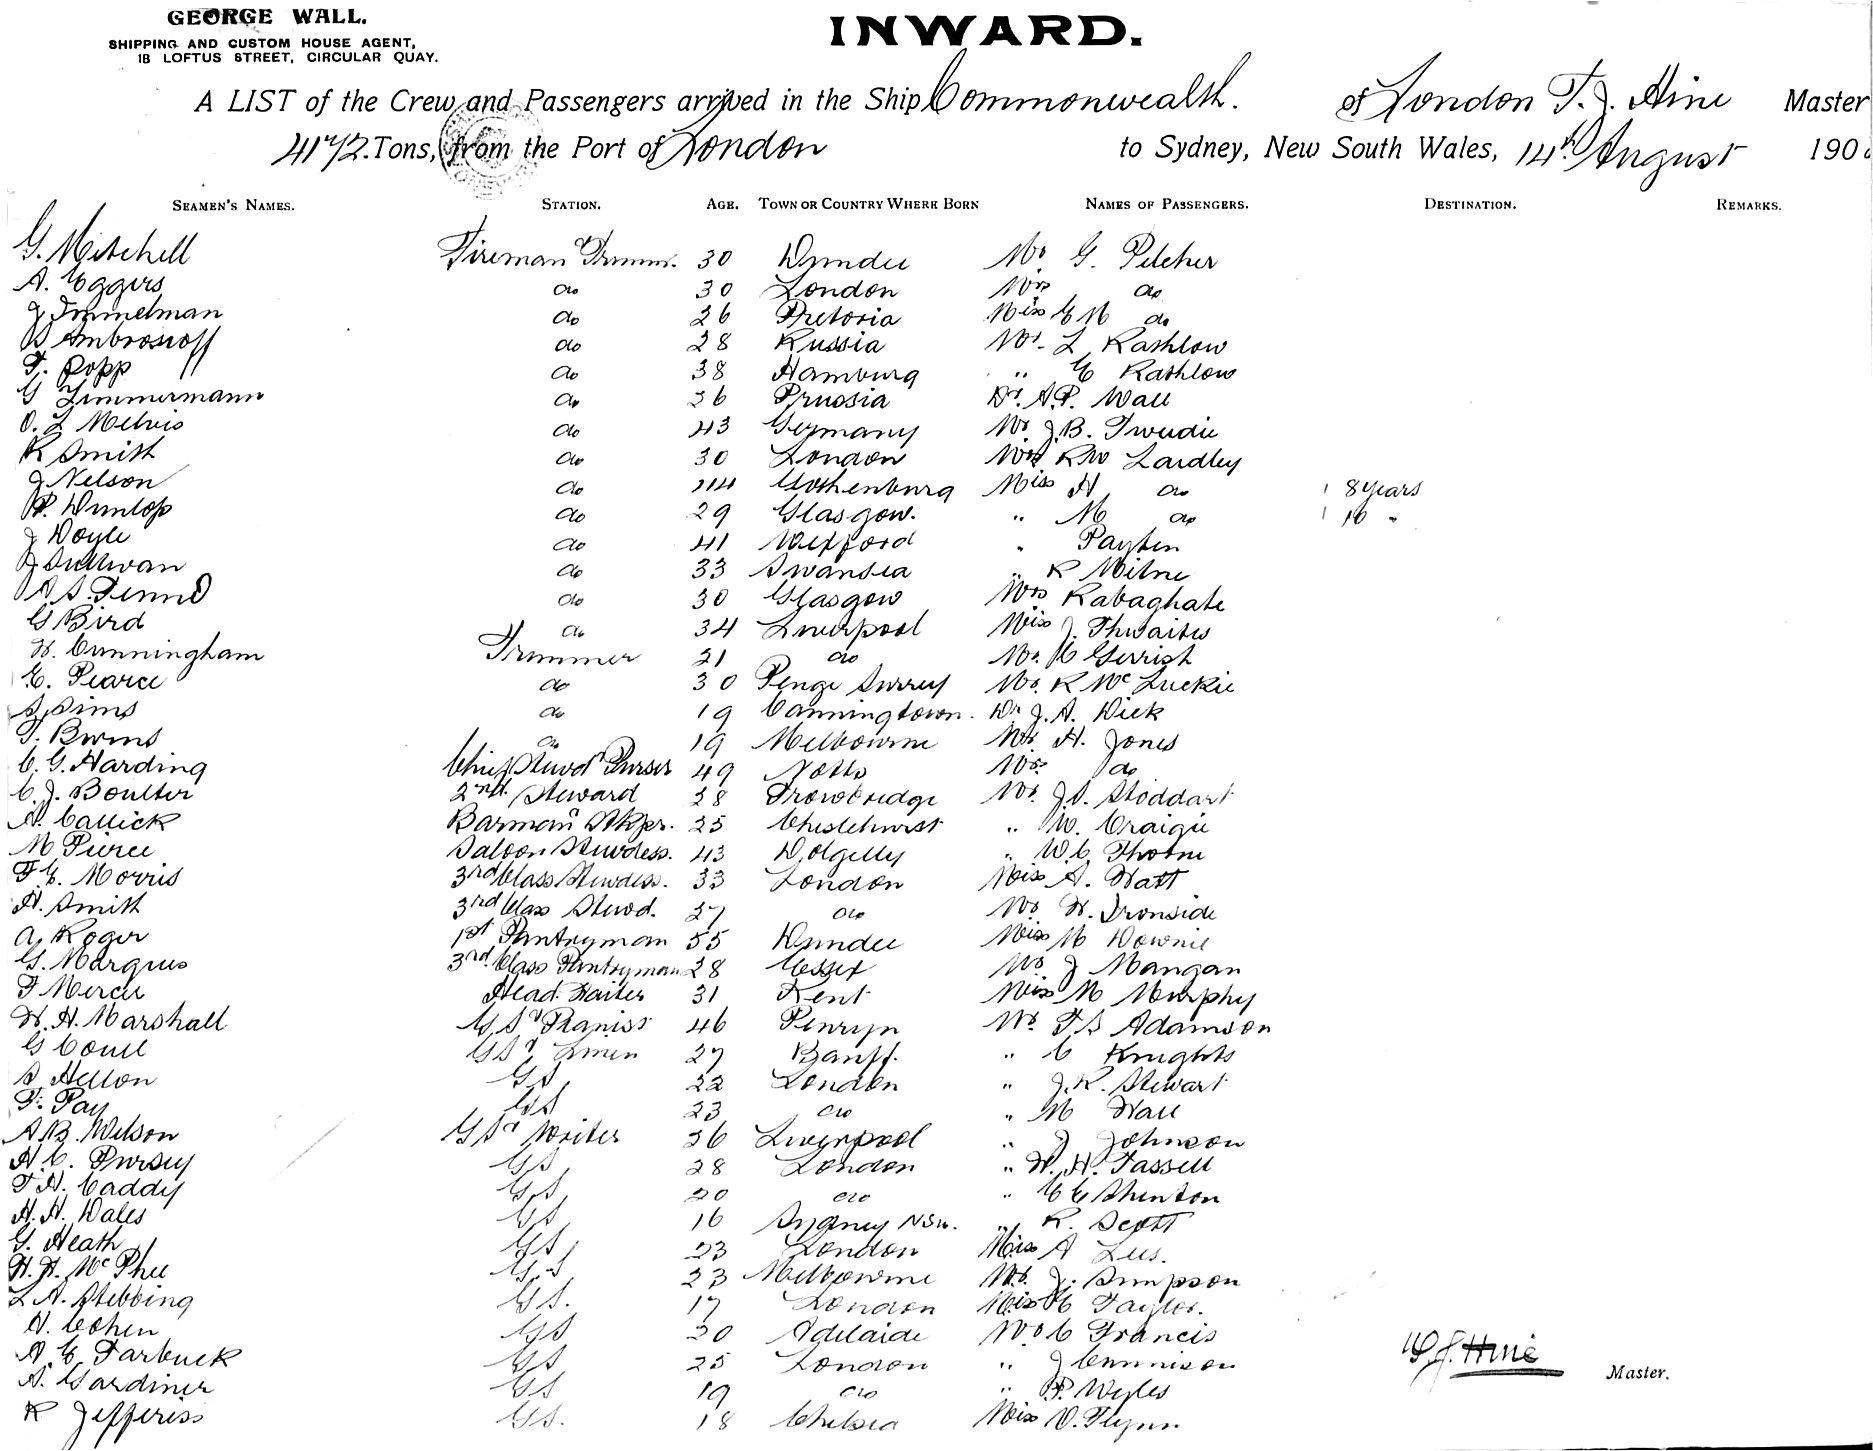 GEORGE WALL.
SHIPPING AND CUSTOM HOUSE AGENT,
18 LOFTUS STREET, CIRCULAR QUAY.
INWARD.
A LIST of the Crew and Passengers arrived in the Ship Commonwealth. of London T. J. Hine Master
4172. Tons, from the Port of London to Sydney, New South Wales, 14th August 190
SEAMEN'S NAMES. STATION. AGE. TOWN OR COUNTRY WHERE BORN NAMES OF PASSENGERS. DESTINATION. REMARKS.
G. Mitchell Fireman & Trimm. 30 Dundee Mr. G. Pilcher
A. Eggers do 30 London Mrs do
J Immelman do 26 Pretoria Miss E M do
B Ambrosioff do 28 Russia Mr. L Rashlow
F. Popp do 38 Hamburg " E Rashlow
G Zimmermann do 36 Prussia Dr. A.P. Wall
O. L Melvis do 43 Germany Mr J.B. Tweedie
R Smith do 30 London Mrs R W Lardley
J Nelson do 44 Gothenburg Miss H do 1 8 years
R. Dunlop do 29 Glasgow. " M do 1 10 "
J Doyle do 41 Wexford " Payten
J Sullivan do 33 Swansea " R Milne
do 30 Glasgow Mrs Rabaghate
G Bird do 34 Liverpool Miss J. Thwaites
H. Cunningham Trimmer 21 do Mr. H Gerrish
E. Pearce do 30 Penge Surrey Mr. R McLuckie
S. Sims do 19 Canningtown. Dr J. A. Dick
J. Burns do 19 Melbourne Mr. H. Jones
C. G. Harding Chief Stewd & Purser 49 Notts Mrs. do
C. J. Boulter 2nd. Steward 38 Trowbridge Mr. J. S. Stoddart
A. Callick Barman & Stkpr. 25 Chislehurst " W. Craigie
M Pierce Saloon Stewdess. 43 Dolgelly " W. C. Thorne
F. E. Morris 3rd Class Stewdess. 33 London Miss A. Watt
H. Smith 3rd Class Stewd. 27 do Mr H. Ironside
A. Roger 1st Pantryman 55 Dundee Miss M Downie
G. Marquis 3rd. Class Pantryman 28 Essex Mr J Mangan
F Mercer Head Waiter 31 Kent Miss M Murphy
H. H. Marshall G. S. & Pianist 46 Penryn Mr. F S Adamson
G Coull G S & Linen 27 Banff. " C Knights
S Hellon GS 22 London " J. R. Stewart
F. Pay GS 23 do " M Hall
A. B. Wilson G S & Writer 36 Liverpool " J Johnson
H. C. Pursey GS 28 London " H. H. Tassell
F. H. Caddy GS 20 do " C E Shenton
H. H. Wales GS 16 Sydney NSW. " R. Scott
G. Heath GS 23 London Miss A Lees.
H. H. McPhee GS 23 Melbourne Mr. J. Simpson
L A. Stebbing GS. 17 London Miss E Taylor.
H. Cohen GS 20 Adelaide Mr C Francis
A. E. Tarbuck GS 25 London " J Cunnison
A. Gardiner GS 19 do " P. Wyles
R Jefferiss GS. 18 Chelsea Miss D. Flynn
Hine
Master.